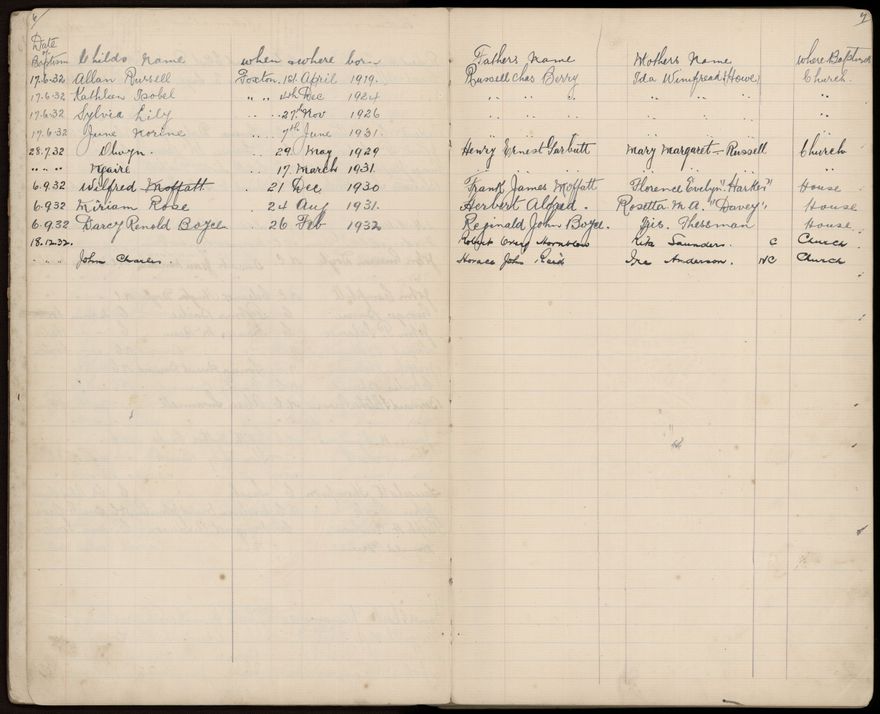 Date of Baptism Childs Name when & where born Fathers Name Mothers Name where Baptised
17.6.32 Allan Russell Foxton. 1st April 1919. Russell Chas Berry Ida Winifread (Howe) Church.
17.6.32 Kathleen Isobel " " 4th Dec 1924 " " " " " " "
17.6.32 Sylvia Lily " " 27th Nov 1926 " " " " " " "
17.6.32 June Norine " " 7th June 1931. " " " " " " "
28.7.32 Olwyn. " 29 May 1929 Henry Ernest Garbutt Mary Margaret - Russell Church
" " " Ngaire " 17 March 1931. " " " " " " "
6.9.32 Wilfred Moffatt " 21 Dec 1930 Frank James Moffatt Florence Evelyn "Harker" House
6.9.32 Miriam Rose " 24 Aug 1931. Herbert Alfred. Rosetta M. A. "Davey". House
6.9.32 Darcy Renold Boyce " 26 Feb 1932 Reginald John Boyce. Thessman House.
18.12.32. Robert Hornblow Rita Saunders. C Church
" " " John Charles. Horace John Reid Anderson. NC Church